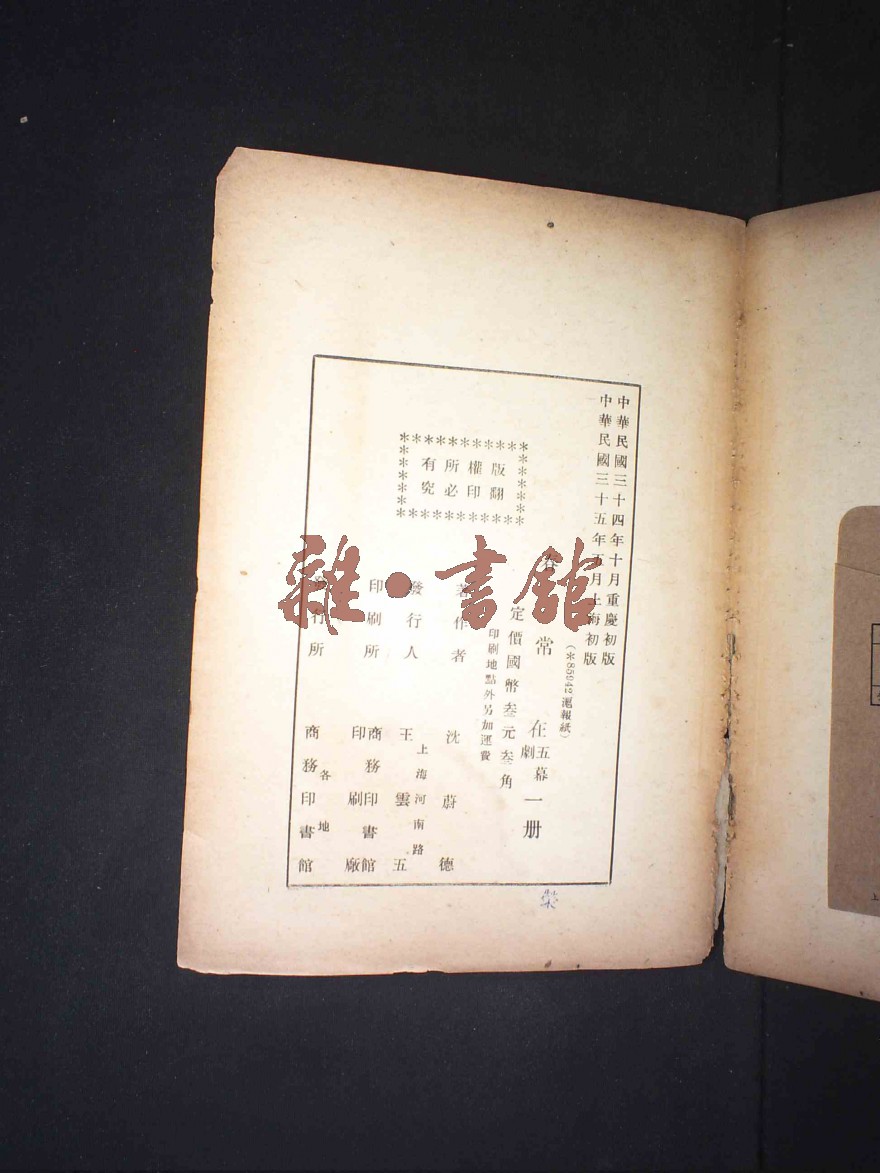 中華民國三十四年十月重慶初版
中華民國三十五年五月上海初版
(*85942滬報紙)
春常在 五幕劇 一册
定價國幣叁元叁角
印刷地點外另加運費
版權所有
翻印必究
著作者 沈蔚德
發行人 王雲五
上海河南路
印刷所 商務印書館
印刷廠
發行所 商務印書館
各地
雜·書館